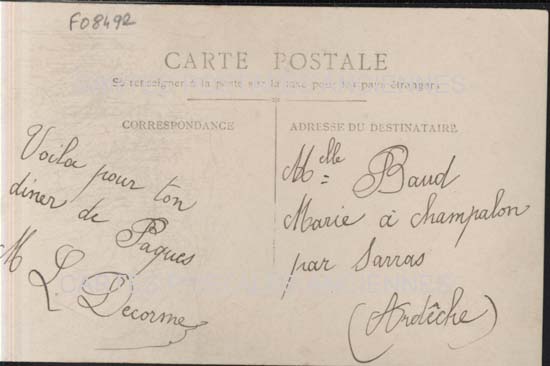 F08492
CARTE POSTALE
Se renseigner à la poste sur la taxe pour les pays étrangers
CORRESPONDANCE
Voila pour ton
diner de Paques
M L Decorme
ADRESSE DU DESTINATAIRE
Mlle Baud
Marie à champalon
par Sarras
(Ardêche)
CARTES POSTALES ANCIENNES